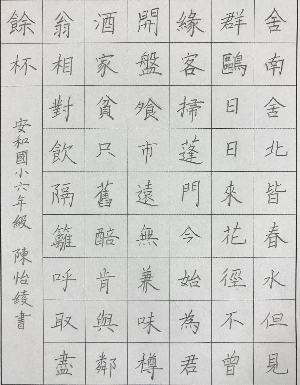 舍南舍北皆春水但見
群鷗日日來花徑不曾
緣客掃蓬門今始為君
開盤飧市遠無兼味樽
酒家貧只舊醅肯與鄰
翁相對飲隔籬呼取盡
餘杯
安和國小六年級 陳怡綾書